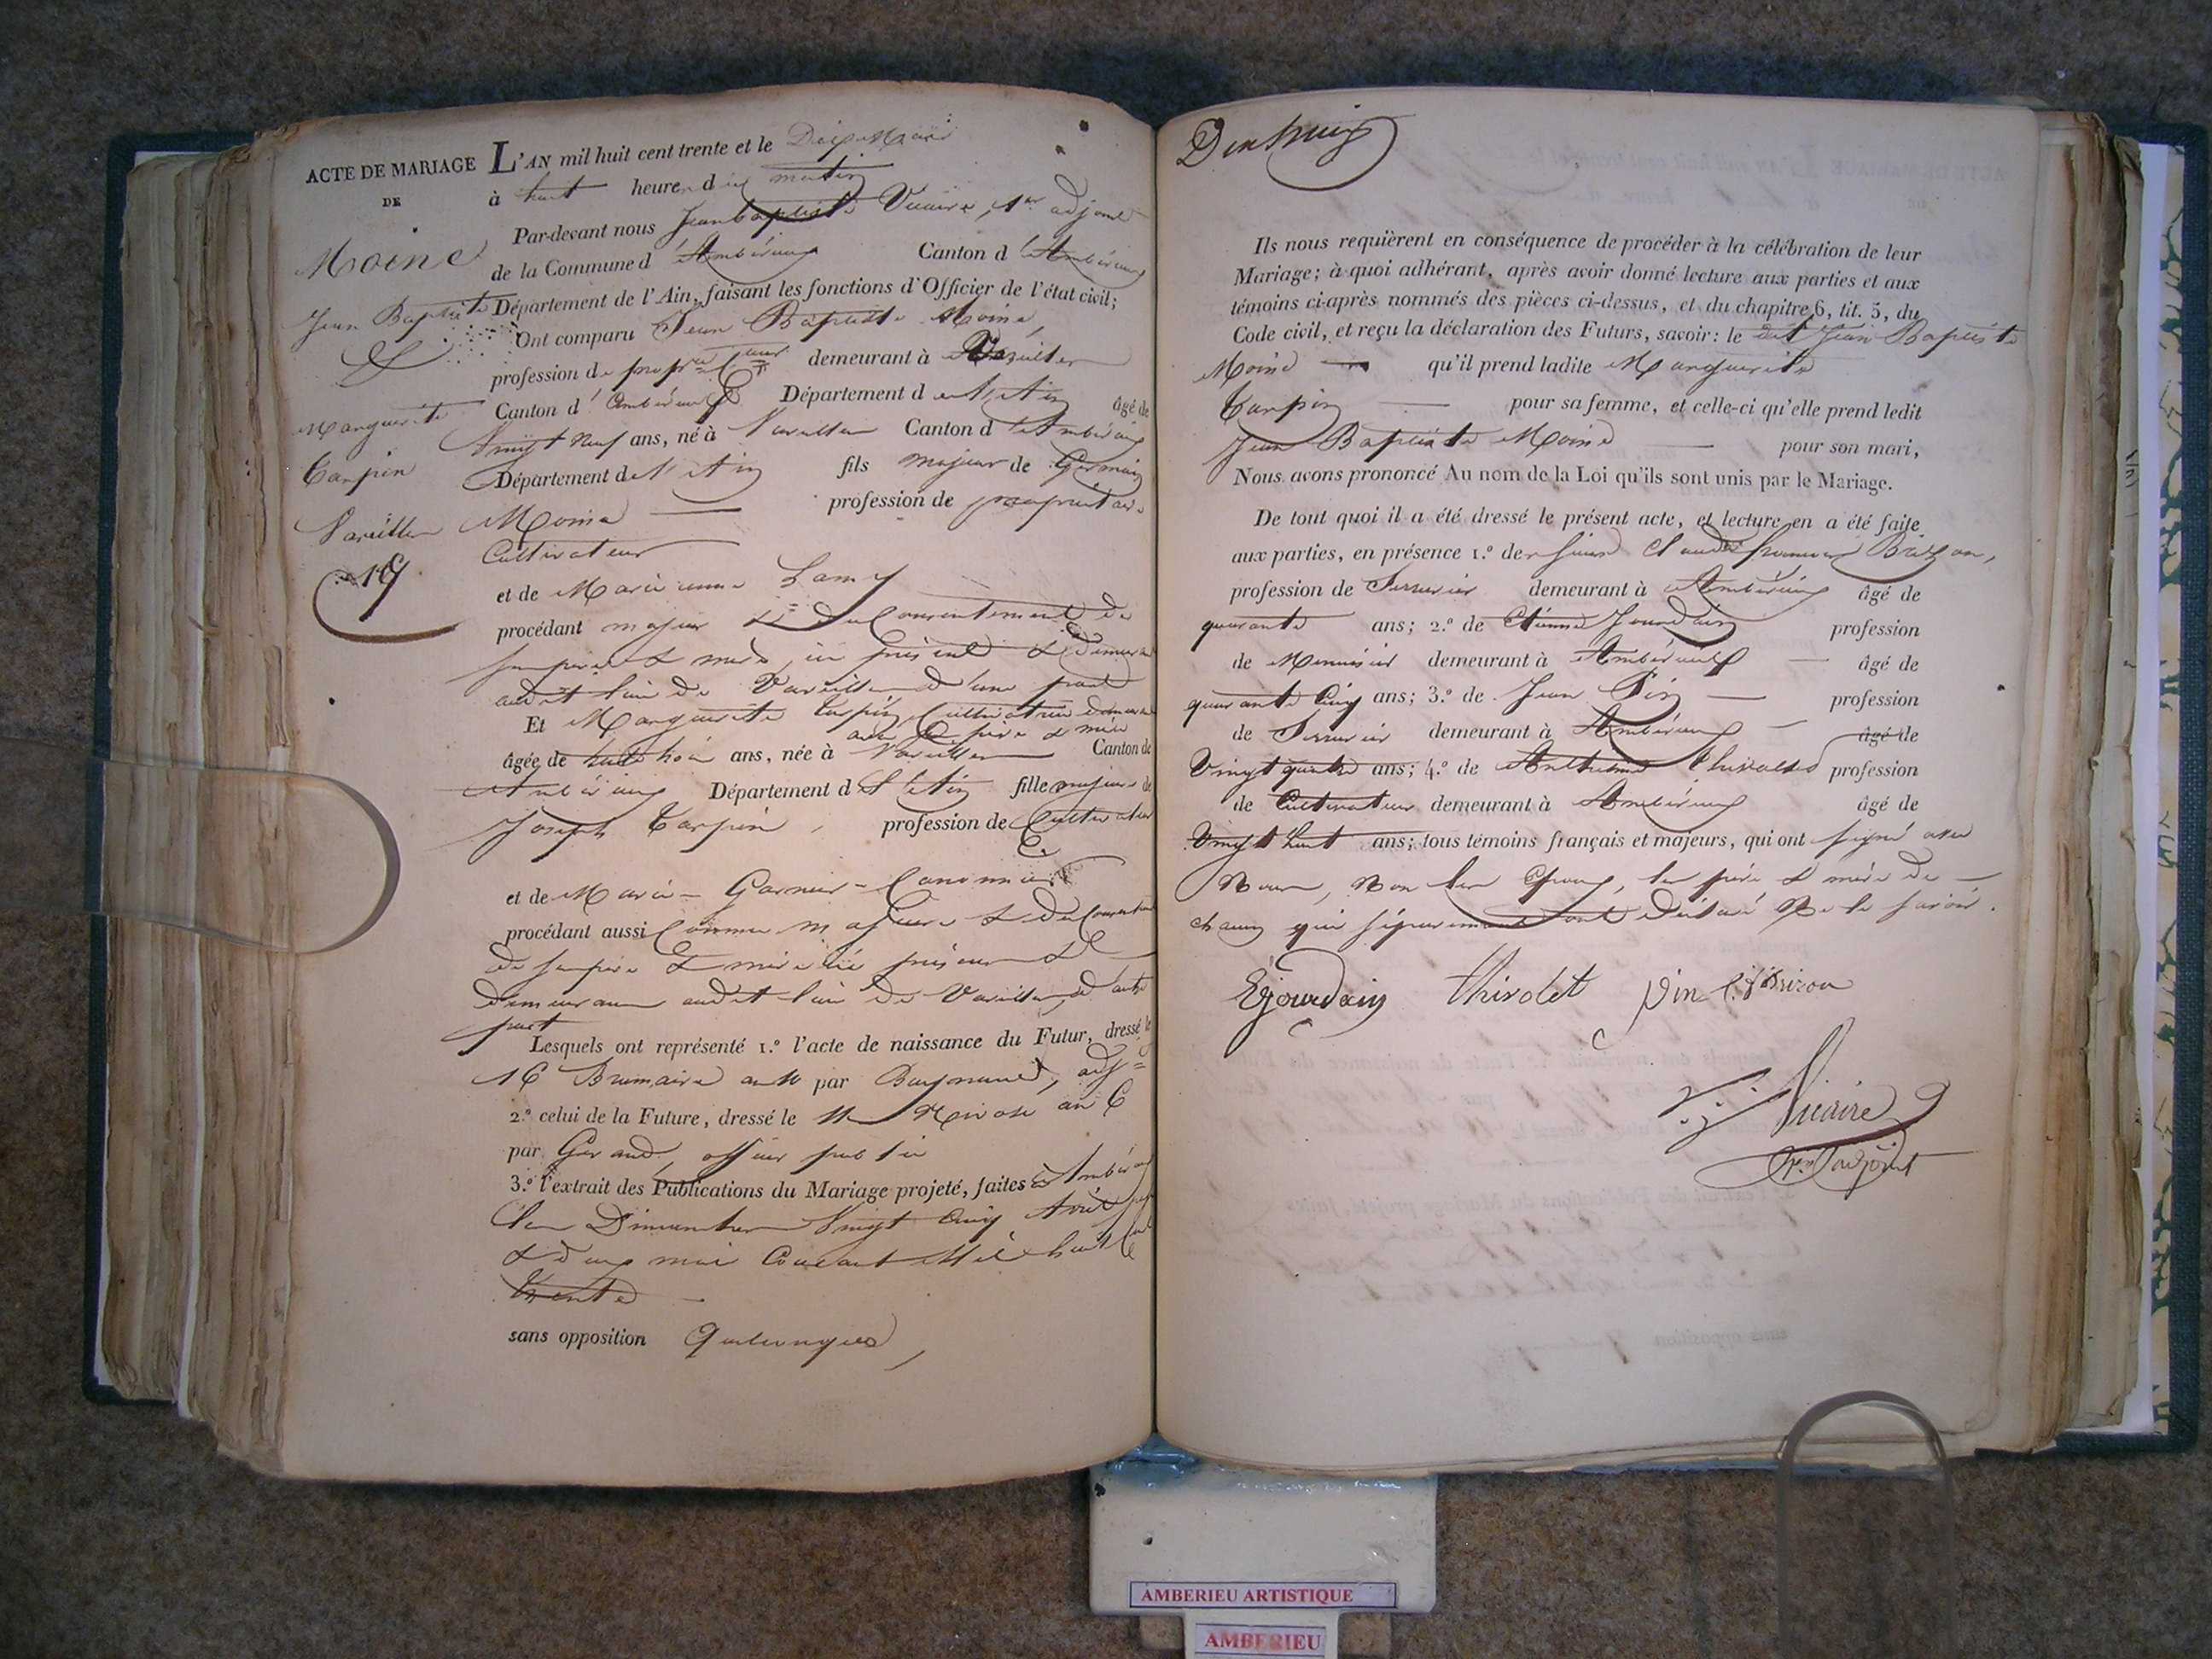 ACTE DE MARIAGE
DE
Moine
Jean Baptiste
&
Marguerite
Carpin
Vareilles
19
L'AN mil huit cent trente et le Dix Mai
à huit heures du matin
Par-devant nous Jean baptiste Vicaire, 1er adjoint
de la Commune d'Ambérieux Canton d'Ambérieux
Département de l'Ain, faisant les fonctions d'Officier de l'état civil;
Ont comparu Jean Baptiste Moine,
profession de demeurant à Vareilles
Canton d'Ambérieux Département de l'Ain âgé de
Vingt neuf ans, né à Vareilles Canton d'Ambérieux
Département de l'Ain fils majeur de Germain
Moine profession de propriétaire
Cultivateur
et de Marianne Lamy
procédant majeur & du Consentement de
ses père & mère, ici présents & demeurant
audit lieu de Vareilles d'une part
Et Marguerite Carpin, Cultivatrice demeurant
avec ses père & mère
âgée de trois ans, née à Vareilles Canton de
Ambérieux Département de l'Ain fille majeure de
Joseph Carpin, profession de Cultivateur
et de Marie Garnier
procédant aussi Comme majeure & du Consentement
de ses père & mère ici présents &
demeurans audit lieu de Vareilles, d'autre
part
Lesquels ont représenté 1.º l'acte de naissance du Futur, dressé le
16 Brumaire an par adjt
2.º celui de la Future, dressé le Nivose an 6
par officier public
3.º l'extrait des Publications du Mariage projeté, faites à Ambérieux
les Dimanches Vingt Cinq Avril
& deux mai Courant Mil huit Cent
trente
sans opposition Quelconque,
Ils nous requièrent en conséquence de procéder à la célébration de leur
Mariage; à quoi adhérant, après avoir donné lecture aux parties et aux
témoins ci-après nommés des pièces ci-dessus, et du chapitre 6, tit. 5, du
Code civil, et reçu la déclaration des Futurs, savoir: le dit Jean Baptiste
Moine qu'il prend ladite Marguerite
Carpin pour sa femme, et celle-ci qu'elle prend ledit
Jean Baptiste Moine pour son mari,
Nous avons prononcé Au nom de la Loi qu'ils sont unis par le Mariage.
De tout quoi il a été dressé le présent acte, et lecture en a été faite
aux parties, en présence 1.º de Sieurs Claude françois Brizon,
profession de Serrurier demeurant à Ambérieux âgé de
quarante ans; 2.º de Etienne Jourdain profession
de Menuisier demeurant à Ambérieux âgé de
quarante Cinq ans; 3.º de Jean Pin profession
de Serrurier demeurant à Ambérieux âgé de
Vingt quatre ans; 4.º de Anthelme Thivolet profession
de Cultivateur demeurant à Ambérieux âgé de
Vingt huit ans; tous témoins français et majeurs, qui ont signé avec
Nous, Non les Epoux, les père & mère de
chacun qui séparément ont déclaré Ne le savoir.
Ejourdain Thivolet Pin C. f Brizon
Vicaire
1er adjoint
AMBERIEU ARTISTIQUE
AMBERIEU